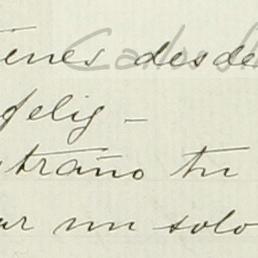 tienes desde
feliz -
extraño tu
ar un solo